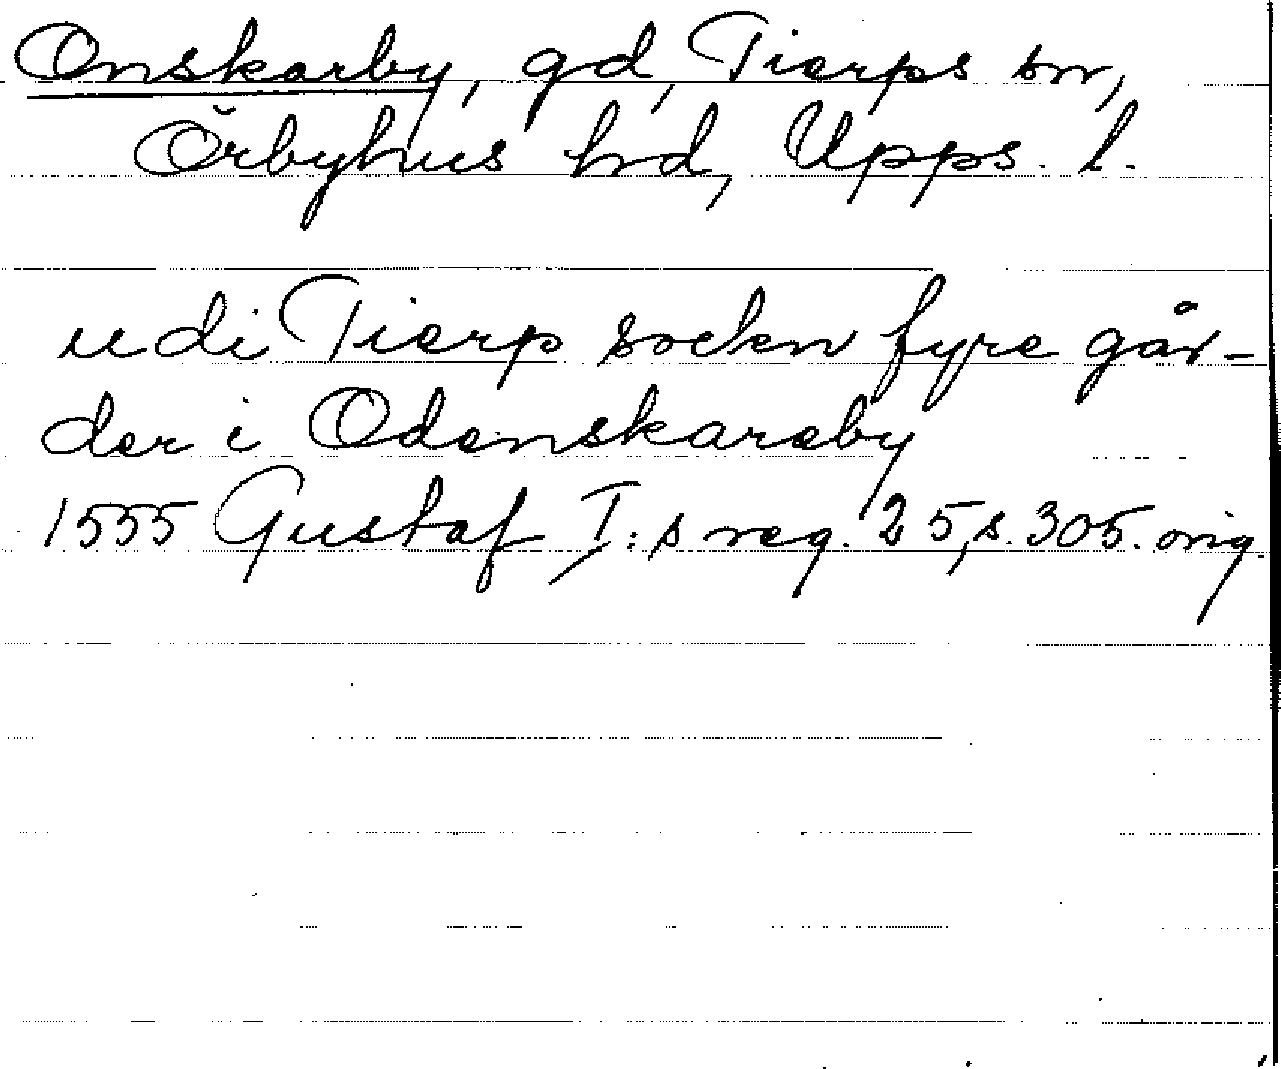 Onskarby, gd, Tierps sn,
Örbyhus hd, Upps. l.
udi Tierp socken fyre går-
der i Odenskareby
1555 Gustaf I:s reg. 25, s. 305. orig.